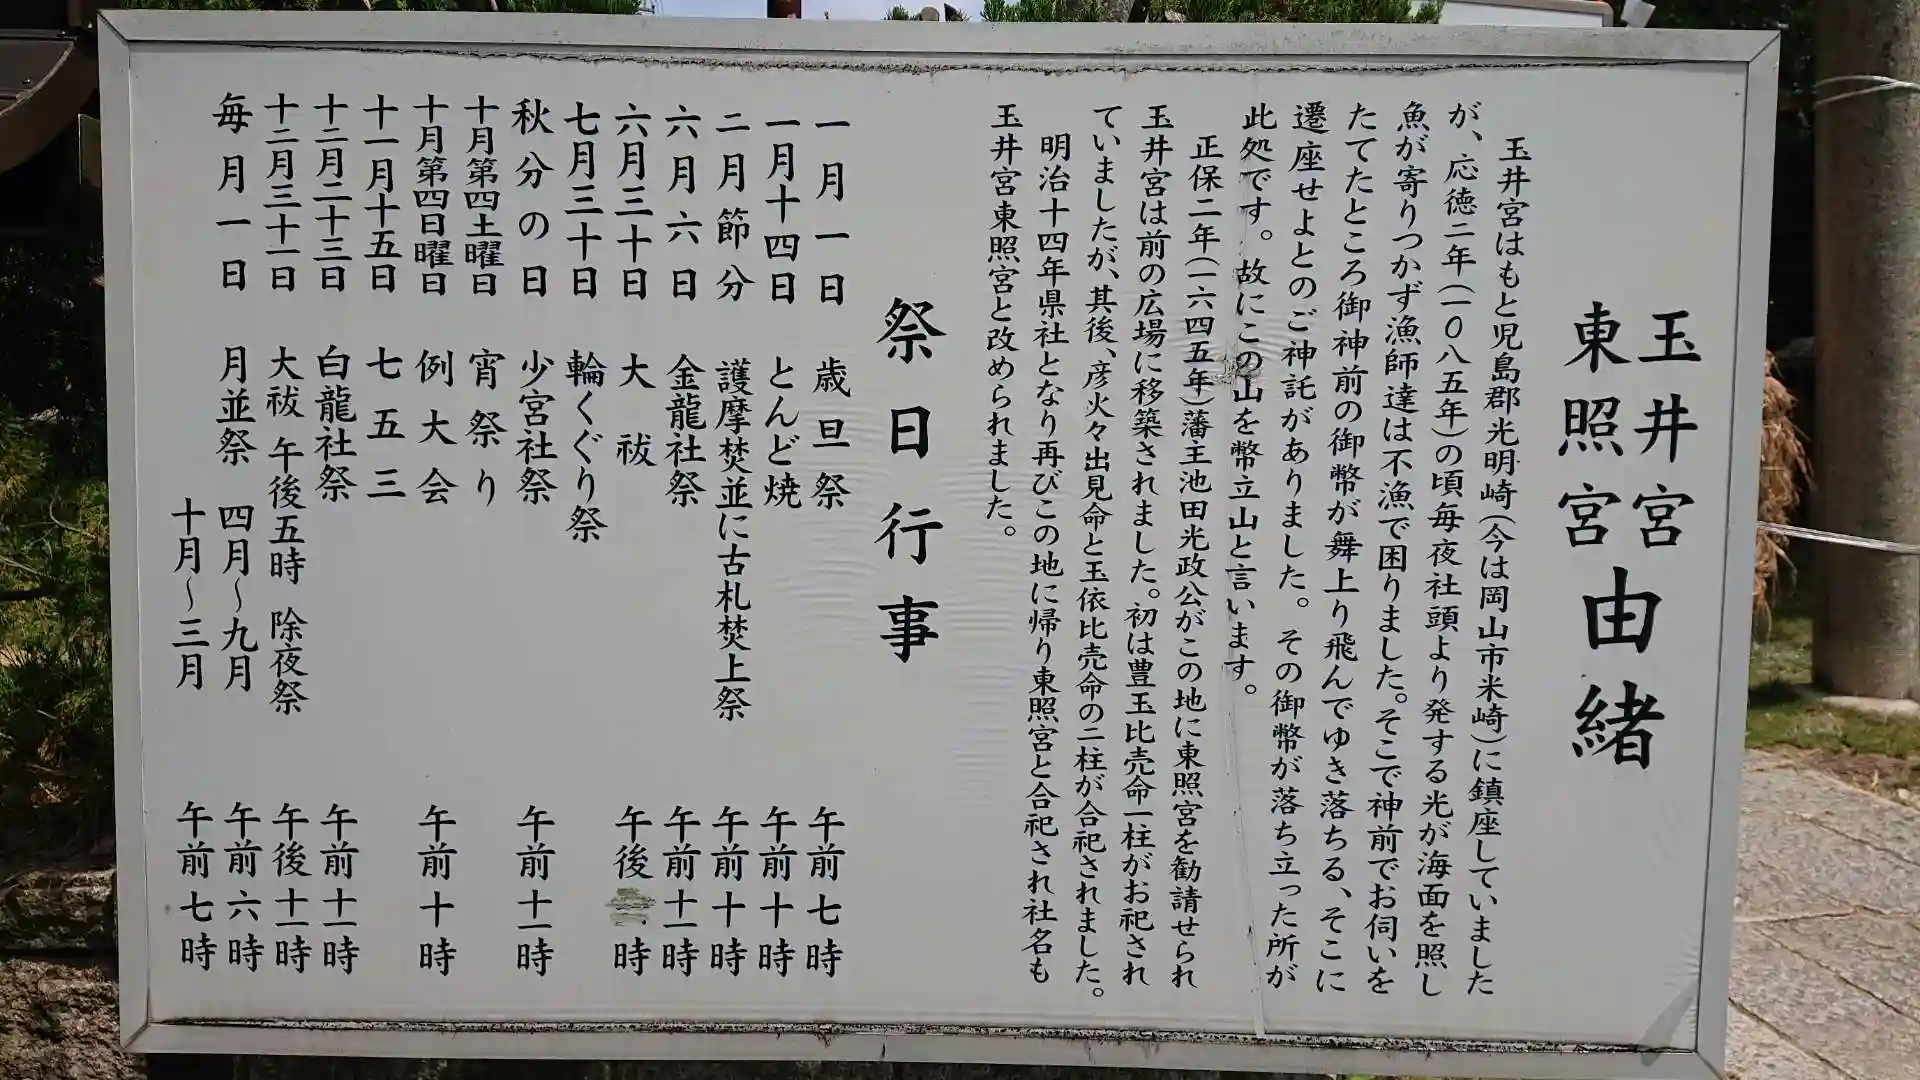 玉井宮
東照宮
由緒
玉井宮はもと児島郡光明崎（今は岡山市米崎）に鎮座していました
が、応徳二年（一〇八五年）の頃毎夜社頭より発する光が海面を照し
魚が寄りつかず漁師達は不漁で困りました。そこで神前でお伺いを
たてたところ御神前の御幣が舞上り飛んでゆき落ちる、そこに
遷座せよとのご神託がありました。その御幣が落ち立った所が
此処です。故にこの山を幣立山と言います。
正保二年（一六四五年）藩主池田光政公がこの地に東照宮を勧請せられ
玉井宮は前の広場に移築されました。初は豊玉比売命一柱がお祀され
ていましたが、其後、彦火々出見命と玉依比売命の二柱が合祀されました。
明治十四年県社となり再びこの地に帰り東照宮と合祀され社名も
玉井宮東照宮と改められました。
祭日行事
一月一日 歳旦祭 午前七時
一月十四日 とんど焼 午前十時
二月節分 護摩焚並に古札焚上祭 午前十時
六月六日 金龍社祭 午前十一時
六月三十日 大祓 午後 時
七月三十日 輪くぐり祭
秋分の日 少宮社祭 午前十一時
十月第四土曜日 宵祭り
十月第四日曜日 例大会 午前十時
十一月十五日 七五三
十二月二十三日 白龍社祭 午前十一時
十二月三十一日 大祓 午後五時 除夜祭 午後十一時
毎月一日 月並祭 四月〜九月 午前六時
十月〜三月 午前七時